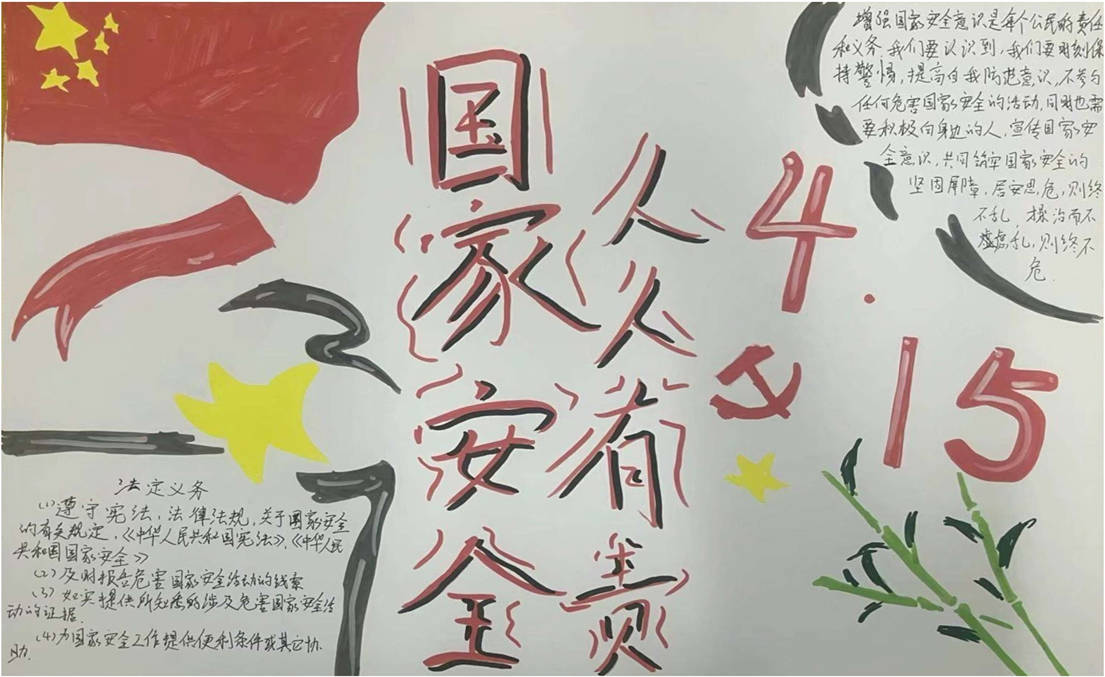 国家安全
人人有责
4.15
增强国家安全意识是每个公民的责任
和义务 我们要认识到,我们要时刻保
持警惕,提高自我防范意识,不参与
任何危害国家安全的活动,同时也需
要积极向身边的人,宣传国家安
全意识,共同筑牢国家安全的
坚固屏障,居安思危,则终
不乱 操治而不
虑乱,则终不
危.
法定义务
(1)遵守宪法,法律法规,关于国家安全
的有关规定,《中华人民共和国宪法》,《中华人民
共和国国家安全》
(2)及时报告危害国家安全活动的线索
(3)如实提供所知悉的涉及危害国家安全活
动的证据.
(4)为国家安全工作提供便利条件或其它协
助.